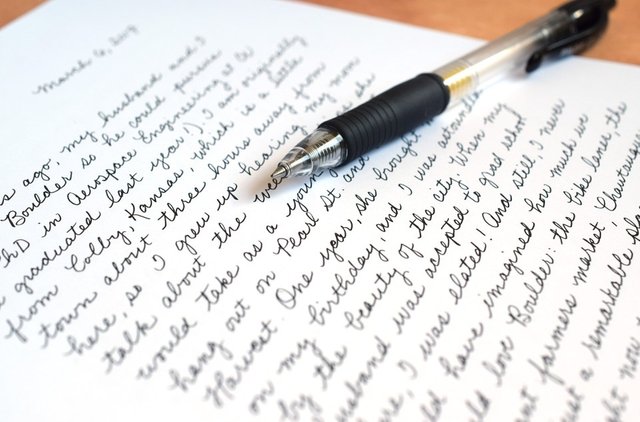 March 6, 2018
ago, my husband and I
Boulder so he could pursue
PhD in Aerospace Engineering at CU
graduated last year!) I am originally
from Colby, Kansas, which is a little
town about three hours away from
here, so I grew up hearing my mom
talk about the
would take as a young
hang out on Pearl St. and
Harvest. One year, she brought
on my birthday, and I was astounded
by the beauty of the city. When my
husband was accepted to grad school
I was elated! And still, I never
have imagined how much we
love Boulder: the bike lanes, the
farmers market, Chautauqua
a remarkable
now